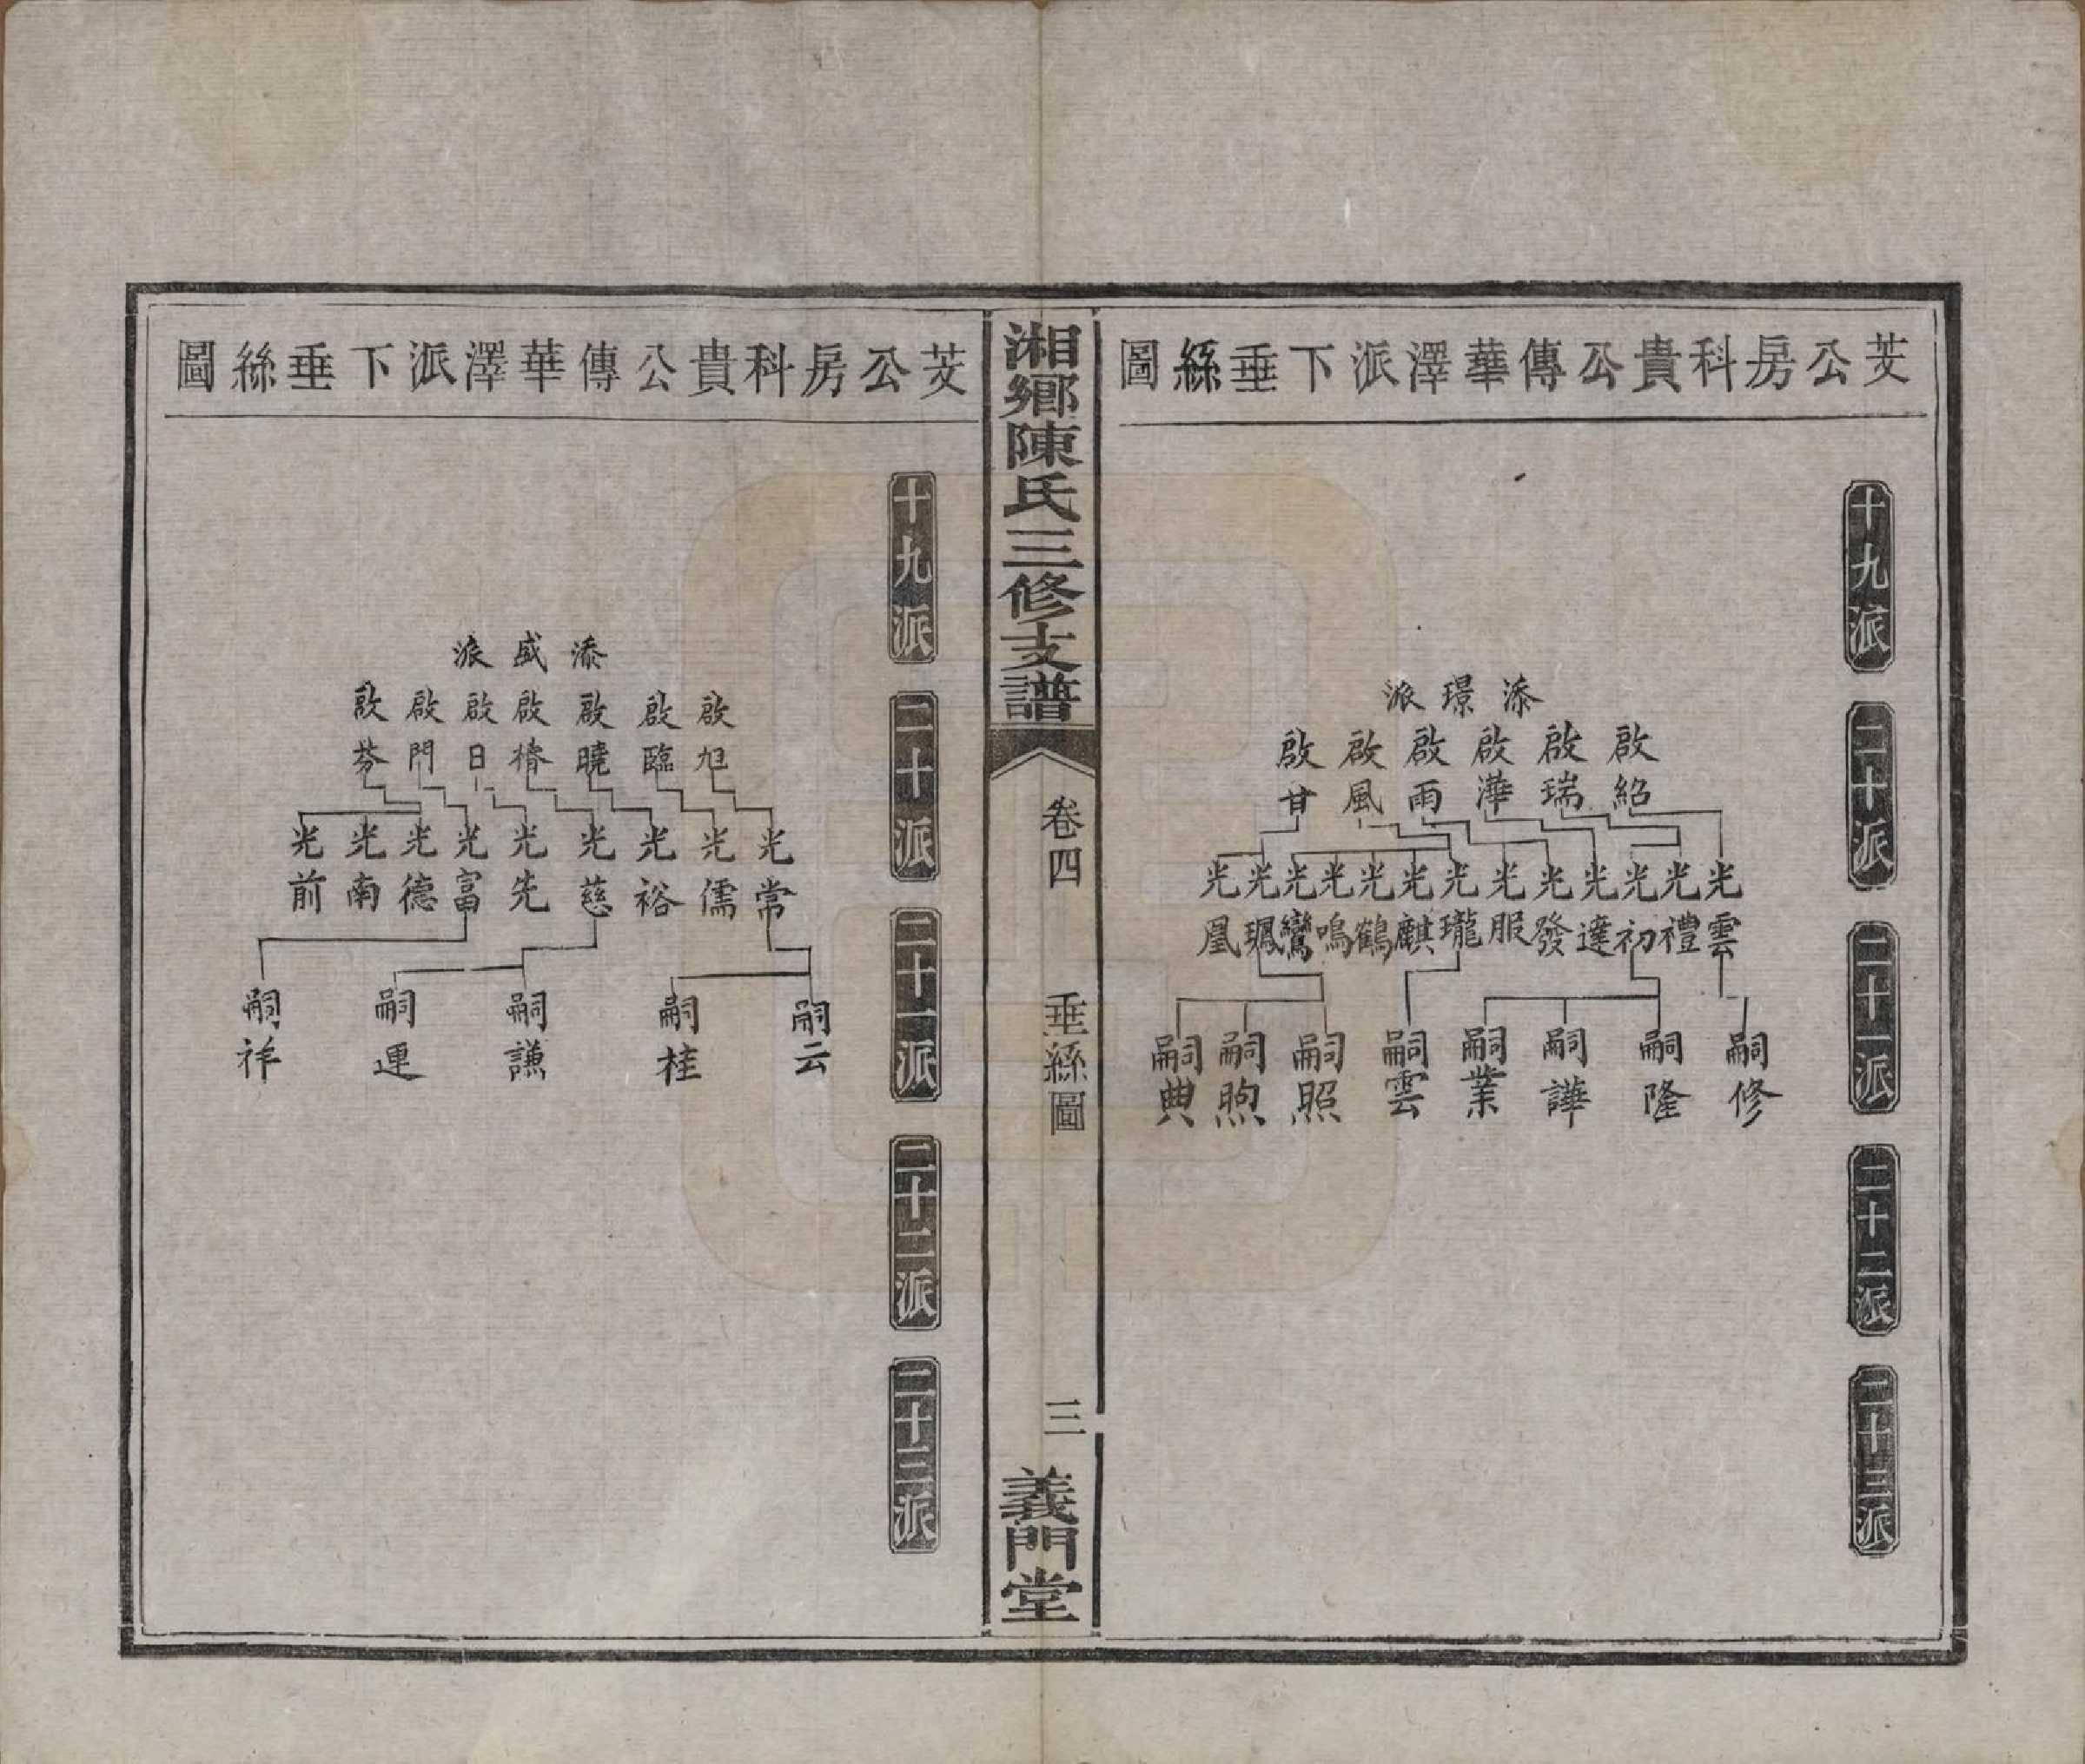 茭公房科貴公傳華澤派下垂絲圖
十九派
二十派
二十一派
二十二派
二十三派
添璟派
啟紹
啟瑞
啟澕
啟雨
啟風
啟甘
光雲
光禮
光初
光達
光發
光服
光瓏
光麒
光鶴
光鳴
光鸞
光珮
光凰
嗣修
嗣隆
嗣譁
嗣業
嗣雲
嗣照
嗣煦
嗣典
湘鄉陳氏三修支譜
卷四
垂絲圖
三
義門堂
茭公房科貴公傳華澤派下垂絲圖
十九派
二十派
二十一派
二十二派
二十三派
添盛派
啟旭
啟臨
啟曉
啟椿
啟日
啟門
啟芬
光常
光儒
光裕
光慈
光先
光富
光德
光南
光前
嗣云
嗣桂
嗣謙
嗣連
嗣祥